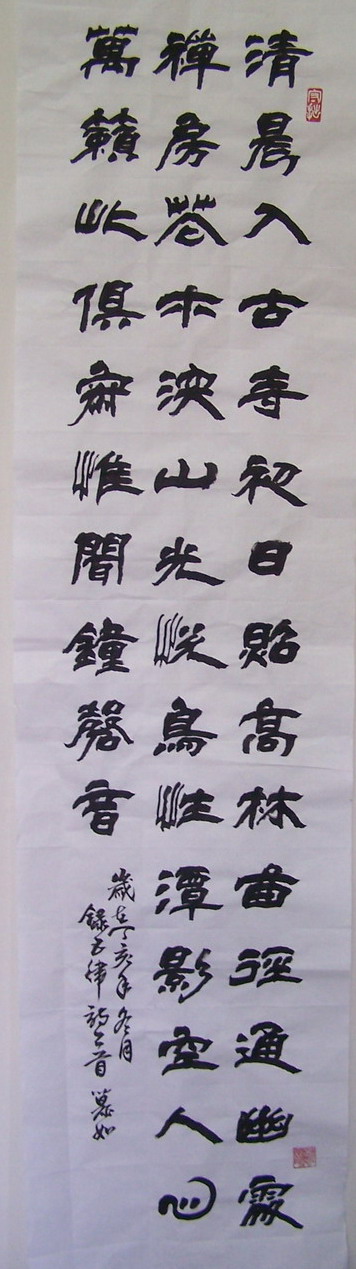 清晨入古寺初日照高林曲徑通幽處
禪房花木深山光悅鳥性潭影空人心
萬籟此俱寂惟聞鐘磬音
歲在丁亥年冬月
錄五律詩一首慕如